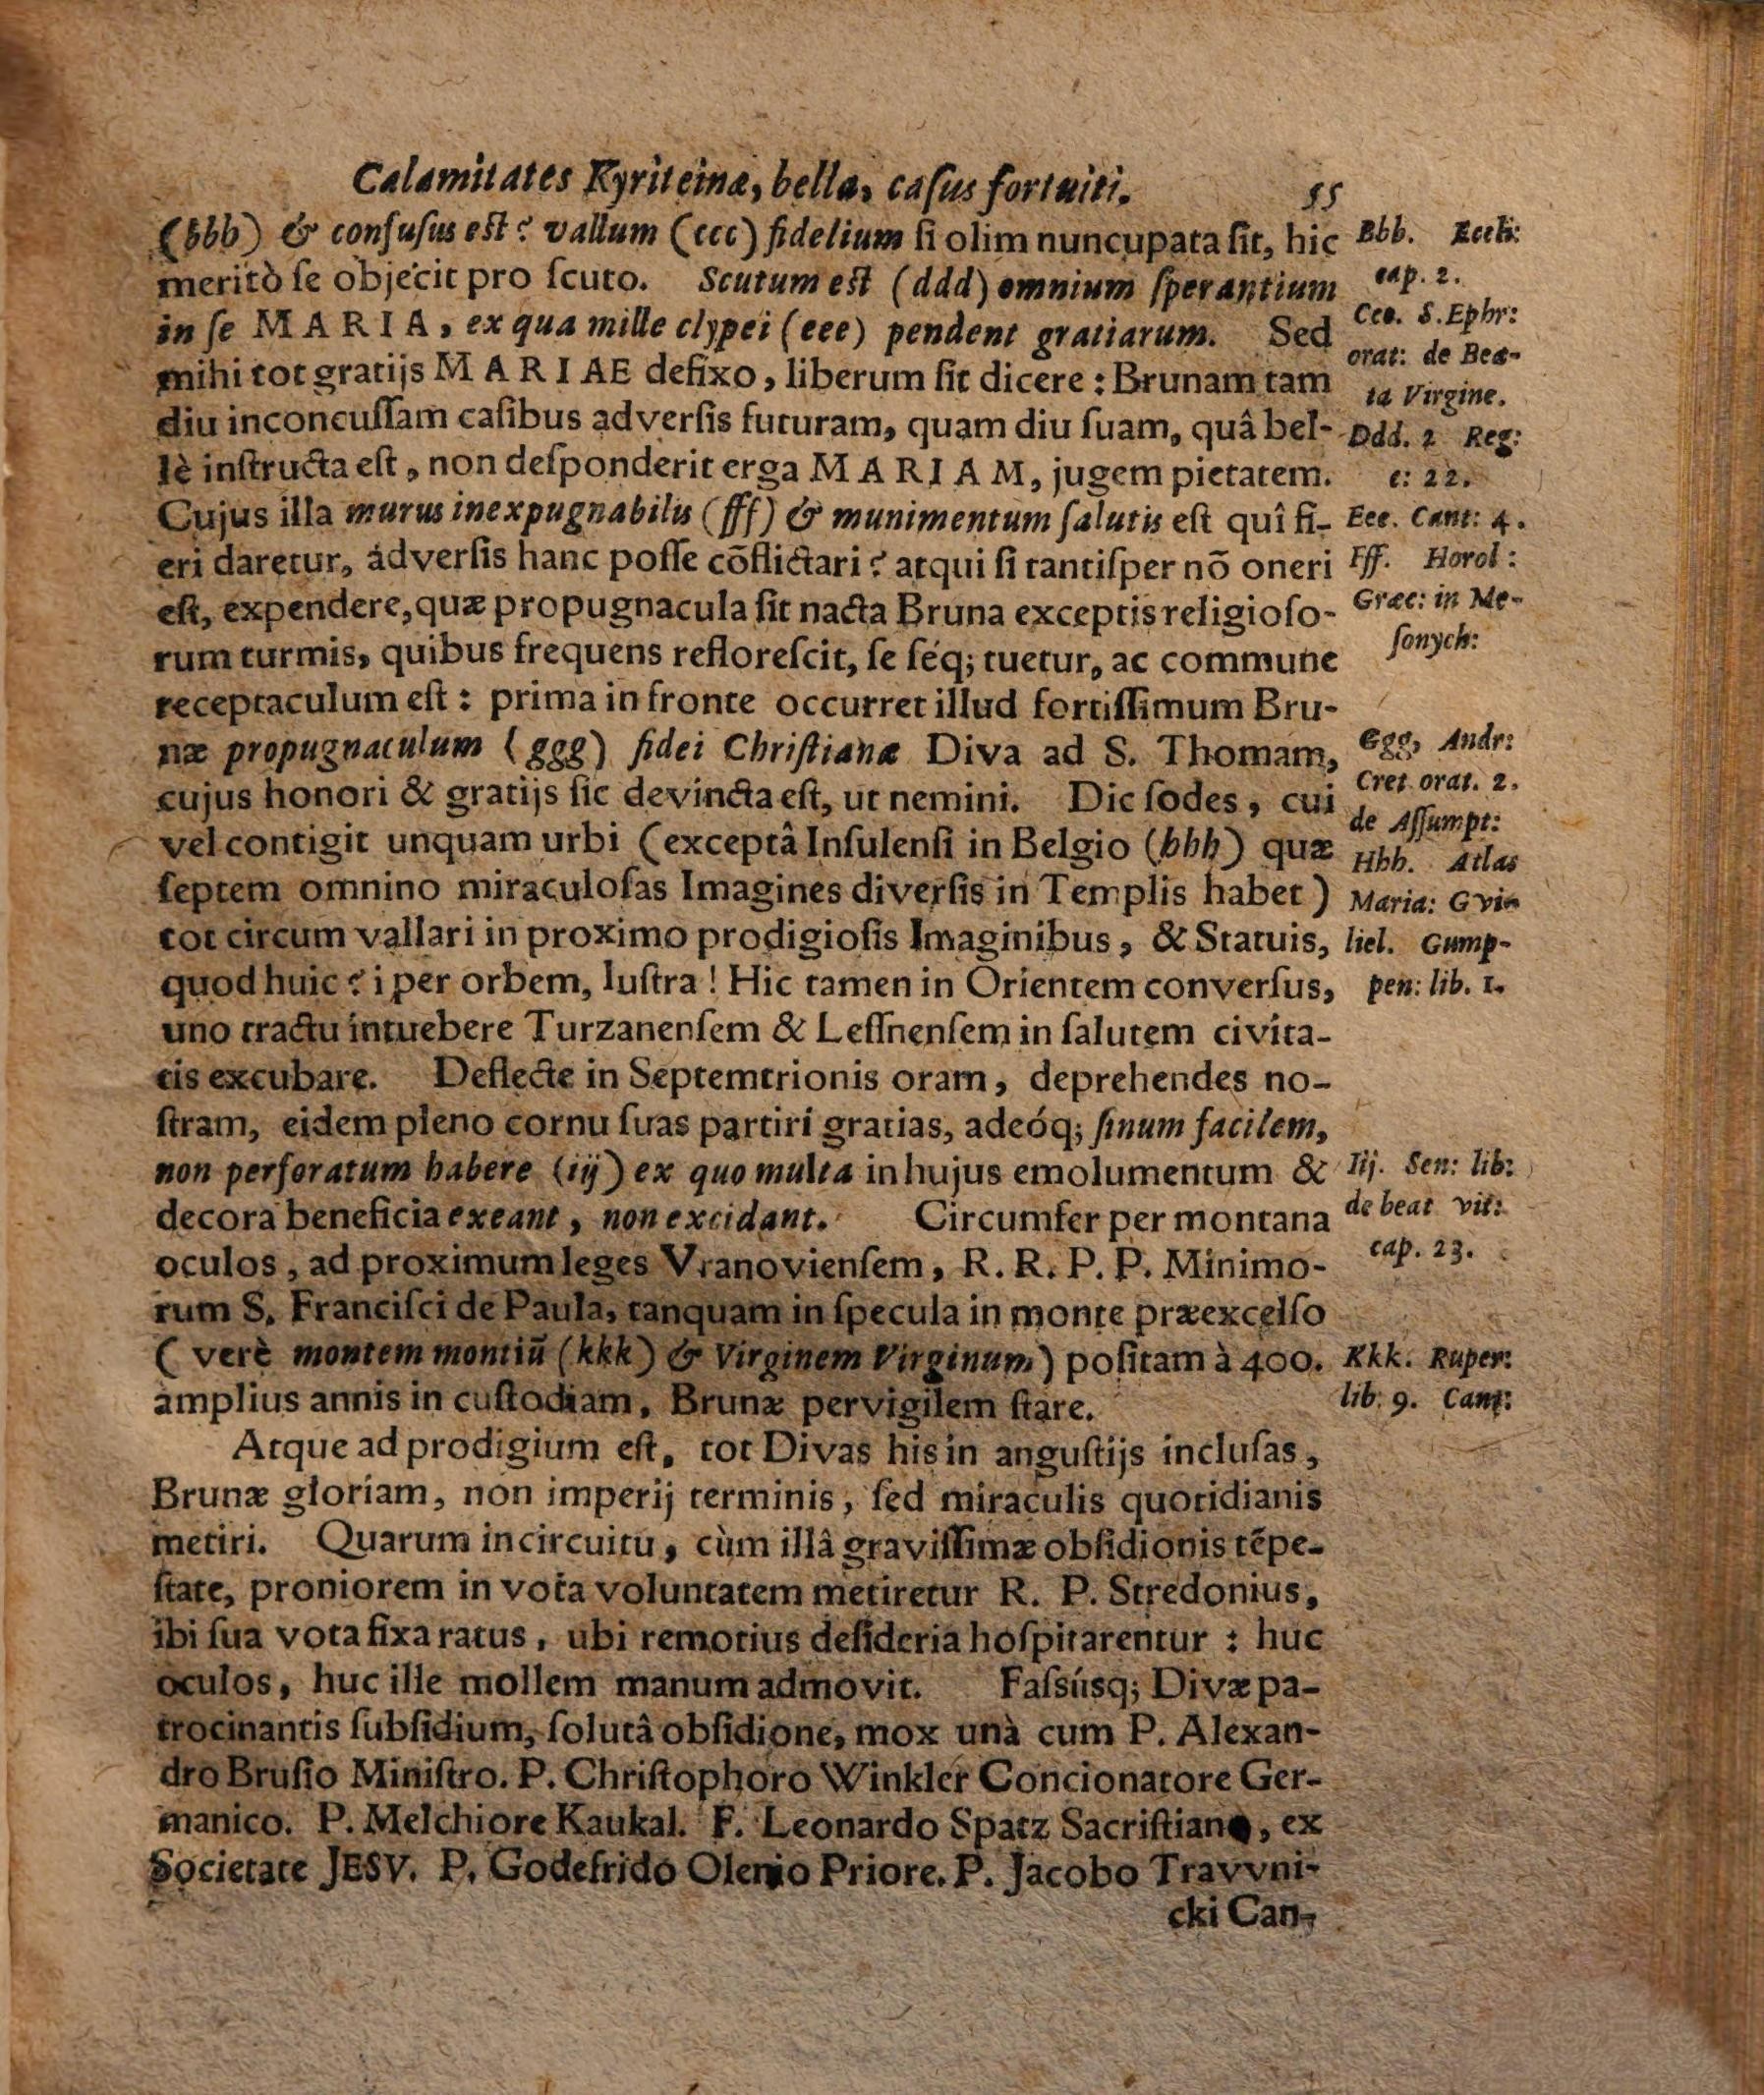 Calamitates Kyriteinæ, bella, caſus fortuiti. 55
(bbb) & confuſus eſt? vallum (ccc) fidelium ſi olim nuncupata ſit, hic
meritò ſe objecit pro ſcuto. Scutum eſt (ddd) omnium ſperantium
in ſe MARIA, ex qua mille clypei (eee) pendent gratiarum. Sed
mihi tot gratijs MARIAE defixo, liberum ſit dicere: Brunam tam
diu inconcuſſam caſibus adverſis futuram, quam diu ſuam, quâ bel-
lè inſtructa eſt, non deſponderit erga MARIAM, jugem pietatem.
Cujus illa murus inexpugnabilis (fff) & munimentum ſalutis eſt quî fi-
eri daretur, adverſis hanc poſſe cõflictari? atqui ſi tantiſper nõ oneri
eſt, expendere, quæ propugnacula ſit nacta Bruna exceptis religioſo-
rum turmis, quibus frequens refloreſcit, ſe ſéq; tuetur, ac commune
receptaculum eſt: prima in fronte occurret illud fortiſſimum Bru-
næ propugnaculum (ggg) fidei Chriſtianæ Diva ad S. Thomam,
cujus honori & gratijs ſic devincta eſt, ut nemini. Dic ſodes, cui
vel contigit unquam urbi (exceptâ Inſulenſi in Belgio (hhh) quæ
ſeptem omnino miraculoſas Imagines diverſis in Templis habet)
tot circum vallari in proximo prodigioſis Imaginibus, & Statuis,
quod huic? i per orbem, luſtra! Hic tamen in Orientem converſus,
uno tractu intuebere Turzanenſem & Leſſnenſem in ſalutem civita-
tis excubare. Deflecte in Septemtrionis oram, deprehendes no-
ſtram, eidem pleno cornu ſuas partiri gratias, adeóq; ſinum facilem,
non perforatum habere (iij) ex quo multa in hujus emolumentum &
decora beneficia exeant, non excidant. Circumfer per montana
oculos, ad proximum leges Vranovienſem, R. R. P. P. Minimo-
rum S. Franciſci de Paula, tanquam in ſpecula in monte præexcelſo
(verè montem montiũ (kkk) & Virginem Virginum) poſitam à 400.
amplius annis in cuſtodiam, Brunæ pervigilem ſtare.
Atque ad prodigium eſt, tot Divas his in anguſtijs incluſas,
Brunæ gloriam, non imperij terminis, ſed miraculis quotidianis
metiri. Quarum in circuitu, cùm illâ graviſſimæ obſidionis tẽpe-
ſtate, proniorem in vota voluntatem metiretur R. P. Stredonius,
ibi ſua vota fixa ratus, ubi remotius deſideria hoſpitarentur: huc
oculos, huc ille mollem manum admovit. Faſsúsq; Divæ pa-
trocinantis ſubſidium, ſolutâ obſidione, mox unà cum P. Alexan-
dro Bruſio Miniſtro. P. Chriſtophoro Winkler Concionatore Ger-
manico. P. Melchiore Kaukal. F. Leonardo Spatz Sacriſtiano, ex
Societate JESV. P. Godefrido Olenio Priore. P. Jacobo Travvni-
cki Can-
Bbb. Eccli:
cap. 2.
Ccc. S. Ephr:
orat: de Bea-
ta Virgine.
Ddd. 2 Reg:
c: 22.
Eee. Cant: 4.
Fff. Horol:
Græc: in Me-
ſonych:
Ggg, Andr:
Cret orat. 2.
de Aſſumpt:
Hbb. Atlas
Maria: Gvi-
liel. Gump-
pen: lib. 1.
Iij. Sen: lib:
de beat vit:
cap. 23.
Kkk. Ruper:
lib. 9. Cant: